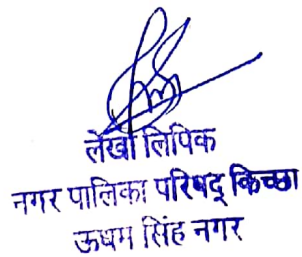 लेखा लिपिक
नगर पालिका परिषद् किच्छा
ऊधम सिंह नगर